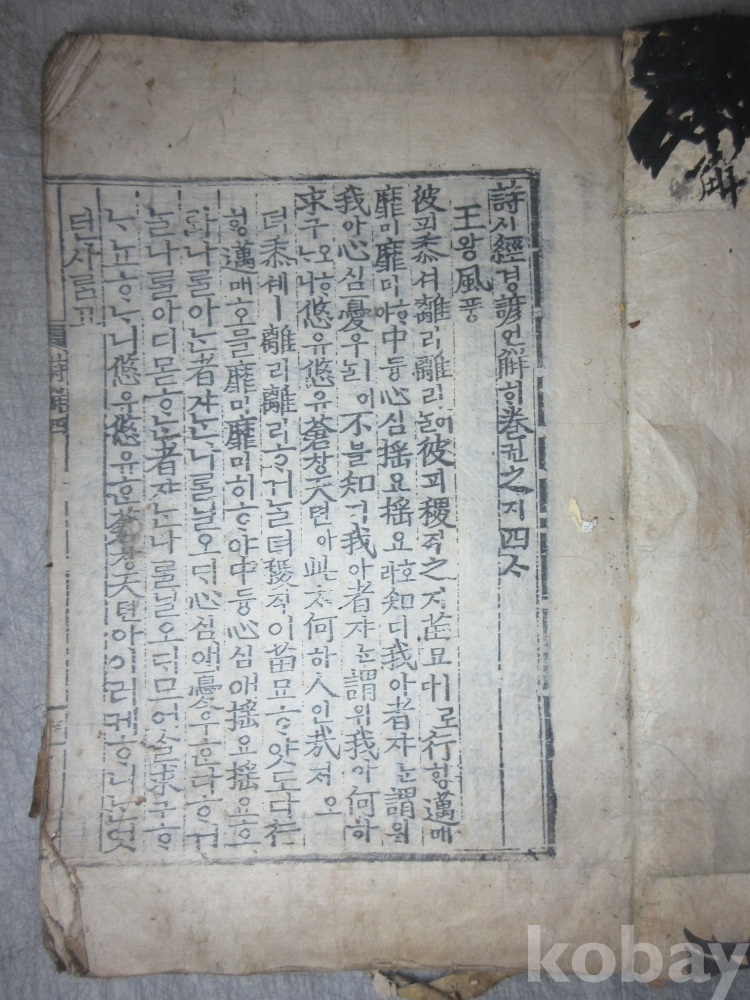 解
詩시經경諺언解ᄒᆡ卷권之지四ᄉᆞ
王왕風풍
彼피黍셔離리離리어ᄂᆞᆯ彼피稷직之지苗묘ㅣ로다行ᄒᆡᆼ邁매
靡미靡미ᄒᆞ야中듕心심搖요搖요호라知디我아者쟈ᄂᆞᆫ謂위
我아心심憂우ㅣ어ᄂᆞᆯ不블知디我아者쟈ᄂᆞᆫ謂위我아何하
求구오ᄒᆞᄂᆞ니悠유悠유蒼창天텬아此ᄎᆞ何하人인哉ᄌᆡ오
뎌黍셔ㅣ離리離리ᄒᆞ거ᄂᆞᆯ뎌稷직이苗묘ᄒᆞ얏도다行
ᄒᆡᆼ邁매호믈靡미靡미히ᄒᆞ야中듕心심애搖요搖요호
라나ᄅᆞᆯ아ᄂᆞᆫ者쟈ᄂᆞᆫ나ᄅᆞᆯ닐오ᄃᆡ心심애憂우ᄒᆞᆫ다ᄒᆞ거
ᄂᆞᆯ나ᄅᆞᆯ아디몯ᄒᆞᄂᆞᆫ者쟈ᄂᆞᆫ나ᄅᆞᆯ닐오ᄃᆡ므어슬求구ᄒᆞ
ᄂᆞ뇨ᄒᆞᄂᆞ니悠유悠유ᄒᆞᆫ蒼창天텬아이리케ᄒᆞ니ᄂᆞᆫ엇
던사ᄅᆞᆷ고
詩解四
kobay